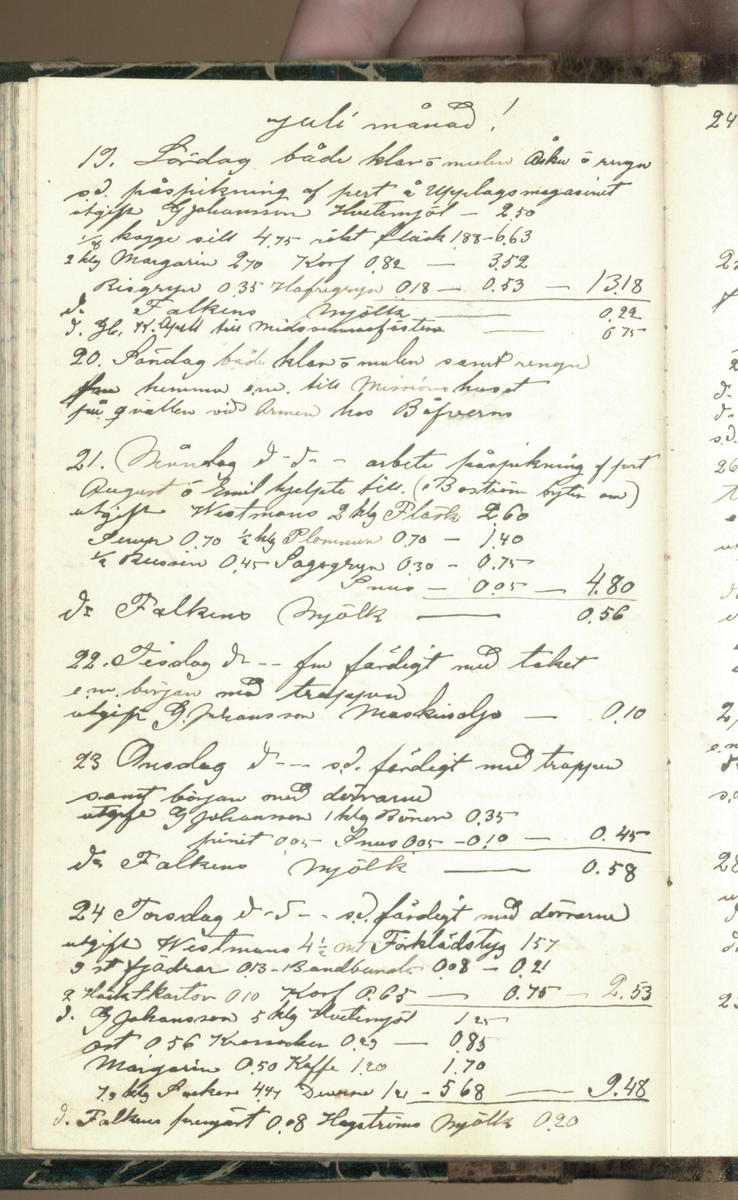 Juli månad!
19. Lördag både klar o mulen Åska o rengn
s.d. påspikning af pert å Upplagsmagasinet
utgift G Johansson Hvetemjöl - 2,50
1/8 kagge sill 4,75 rökt fläsk 1,88 - 6,63
2 klg Margarin 2,70 Korf 0,82 — 3,52
Risgryn 0,35 Hafregryn 0,18 — 0,53 — 13,18
d. Falkens Mjölk — 0,22
d. till Midsommarfästen — 0,75
20. Söndag både klar o mulen samt rengn
fm hemma e.m. till Missionshuset
på qvällen vid Armen hos Bäfverns
21. Måndag d- d- - arbete påspikning af pert
August o Emil hjelpte till. (Boström byten om)
utgift Westmans 2 klg Fläsk 2,60
0,70 1/2 klg Plommon 0,70 — 1,40
1/2 Russin 0,45 Sagogryn 0,30 - 0,75
Snus — 0,05 — 4,80
d: Falkens Mjölk — 0,56
22. Tisdag d- - - fm färdigt med taket
e.m. börjar med trappan
utgift G. Johansson Maskinolja — 0,10
23 Onsdag d- - - s.d. färdigt med trappen
samt börjar med dörrarne
utgift G Johansson 1 klg Bönor 0,35
0,05 Snus 0,05 - 0,10 — 0,45
d: Falkens Mjölk — 0,58
24 Torsdag d- d- - s.d. färdigt med dörrarne
utgift Westmans 4 1/2 Förklädstyg 1,57
2 st fjädrar 0,13 - Bandbunds 0,08 - 0,21
2 0,10 Korf 0,65 — 0,75 — 2,53
d. G Johansson 5 klg Hvetemjöl 1,25
ost 0,56 0,29 — 0,85
Margarin 0,50 Kaffe 1,20 1,70
klg Socker 4,47 Diverse 1,21 - 5,68 — 9,48
d. Falkens 0,08 Hagströms Mjölk 0,20
24